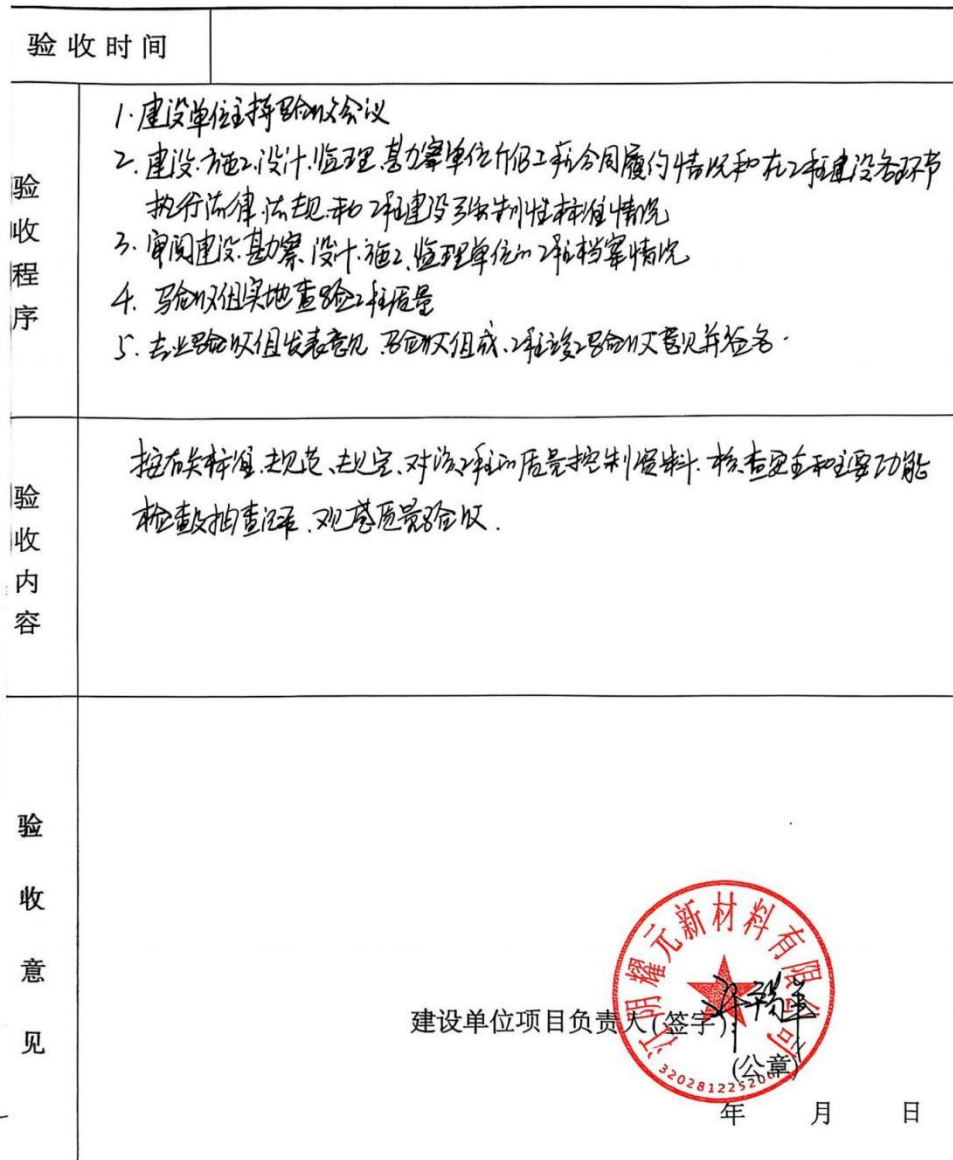 验收时间
验收程序
1.建设单位主持验收会议
2.建设.施工.设计.监理.勘察单位介绍工程合同履约情况和在工程建设各环节
执行法律.法规.和工程建设强制性标准情况
3.审阅建设.勘察.设计.施工.监理单位的工程档案情况
4.验收组实地查验工程质量
5.专业验收组发表意见.验收组成.工程竣工验收意见并签名.
验收内容
按有关标准.规范.规定.对该工程的质量控制资料.核查安全和主要功能
检查及抽查记录.观感质量验收.
验收意见
江明耀元新材料有限公司
建设单位项目负责人(签字):
(公章)
3202812252
年 月 日